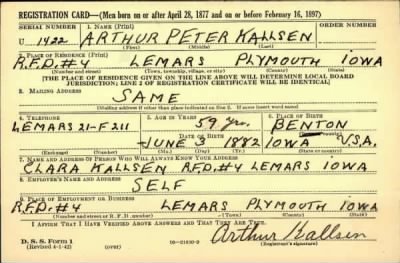 REGISTRATION CARD—(Men born on or after April 28, 1877 and on or before February 16, 1897)
SERIAL NUMBER 1. NAME (Print) ORDER NUMBER
U 1422 ARTHUR PETER KALLSEN
(First) (Middle) (Last)
2. PLACE OF RESIDENCE (Print)
R.F.D. #4 LEMARS PLYMOUTH IOWA
(Number and street) (Town, township, village, or city) (County) (State)
[THE PLACE OF RESIDENCE GIVEN ON THE LINE ABOVE WILL DETERMINE LOCAL BOARD
JURISDICTION; LINE 2 OF REGISTRATION CERTIFICATE WILL BE IDENTICAL]
3. MAILING ADDRESS
SAME
[Mailing address if other than place indicated on line 2. If same insert word same]
4. TELEPHONE 5. AGE IN YEARS 6. PLACE OF BIRTH
59 Yrs. BENTON
LEMARS 21-F211 DATE OF BIRTH (Town or county)
JUNE 3 1882 IOWA U.S.A.
(Exchange) (Number) (Mo.) (Day) (Yr.) (State or country)
7. NAME AND ADDRESS OF PERSON WHO WILL ALWAYS KNOW YOUR ADDRESS
CLARA KALLSEN R.F.D. #4 LEMARS IOWA
8. EMPLOYER'S NAME AND ADDRESS
SELF
9. PLACE OF EMPLOYMENT OR BUSINESS
R.F.D. #4 LEMARS PLYMOUTH IOWA
(Number and street or R. F. D. number) (Town) (County) (State)
I AFFIRM THAT I HAVE VERIFIED ABOVE ANSWERS AND THAT THEY ARE TRUE.
D. S. S. Form 1
(Revised 4-1-42) (over) 16-21630-2 Arthur Kallsen
(Registrant's signature)